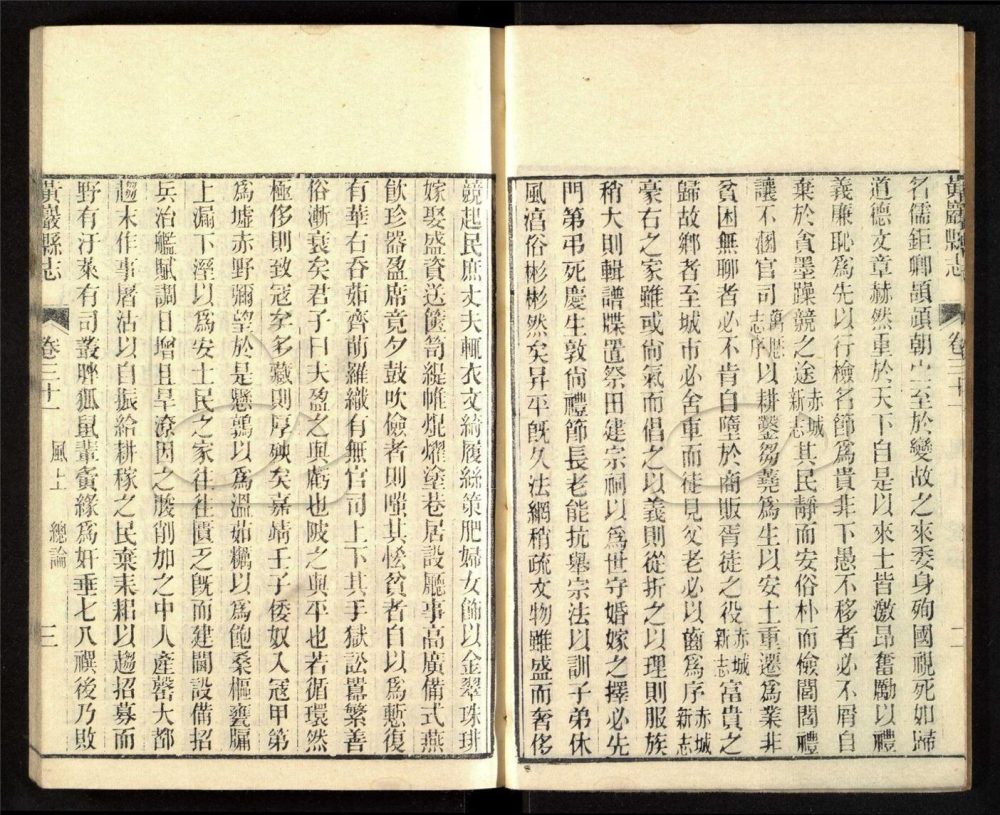 名儒鉅卿頡頏朝至於變故之來委身殉國視死如歸
道德文章赫然重於天下自是以來士皆激昂奮勵以禮
義廉恥爲先以行檢名節爲貴非下愚不移者必不屑自
棄於貪墨躁競之途赤城新志其民靜而安俗朴而儉閭閻禮
讓不擾官司萬厯志序以耕鑿芻蕘爲生以安土重遷爲業非
貧困無聊者必不肯自墮於商販胥徒之役赤城新志富貴之
歸故鄉者至城市必舍車而徒見父老必以齒爲序赤城新志
豪右之家雖或尙氣而倡之以義則從折之以理則服族
稍大則輯譜牒置祭田建宗祠以爲世守婚嫁之擇必先
門第弔死慶生敦尙禮節長老能抗舉宗法以訓子弟休
風湻俗彬彬然矣昇平旣久法網稍疏文物雖盛而奢侈
黃巖縣志 卷三十
競起民庶丈夫輒衣文綺履絲策肥婦女飾以金翠珠琲
嫁娶盛資送篋笥緹帷焜燿塗巷居設廳事高廣備式燕
飮珍器盈席竟夕鼓吹儉者則嗤其恡貧者自以爲慙復
有華右呑茹齊萌羅織有無官司上下其手獄訟嚚繁善
俗漸衰矣君子曰大盈之與虧也陂之與平也若循環然
極侈則致寇多藏則厚殃矣嘉靖壬子倭奴入寇甲第
爲墟赤野彌望於是懸鶉以爲溫茹糲以爲飽桑樞甕牖
上漏下溼以爲安士民之家往往債之旣而建閫設備招
兵治艦賦調日增且旱潦因之朘削加之中人產罄大都
趨末作事屠沽以自振給耕稼之民棄耒耜以趨招募而
野有汙萊有司叢脞狐鼠輩夤緣爲奸垂七八禩後乃敗
黃巖縣志 卷三十一 風土 總論 三